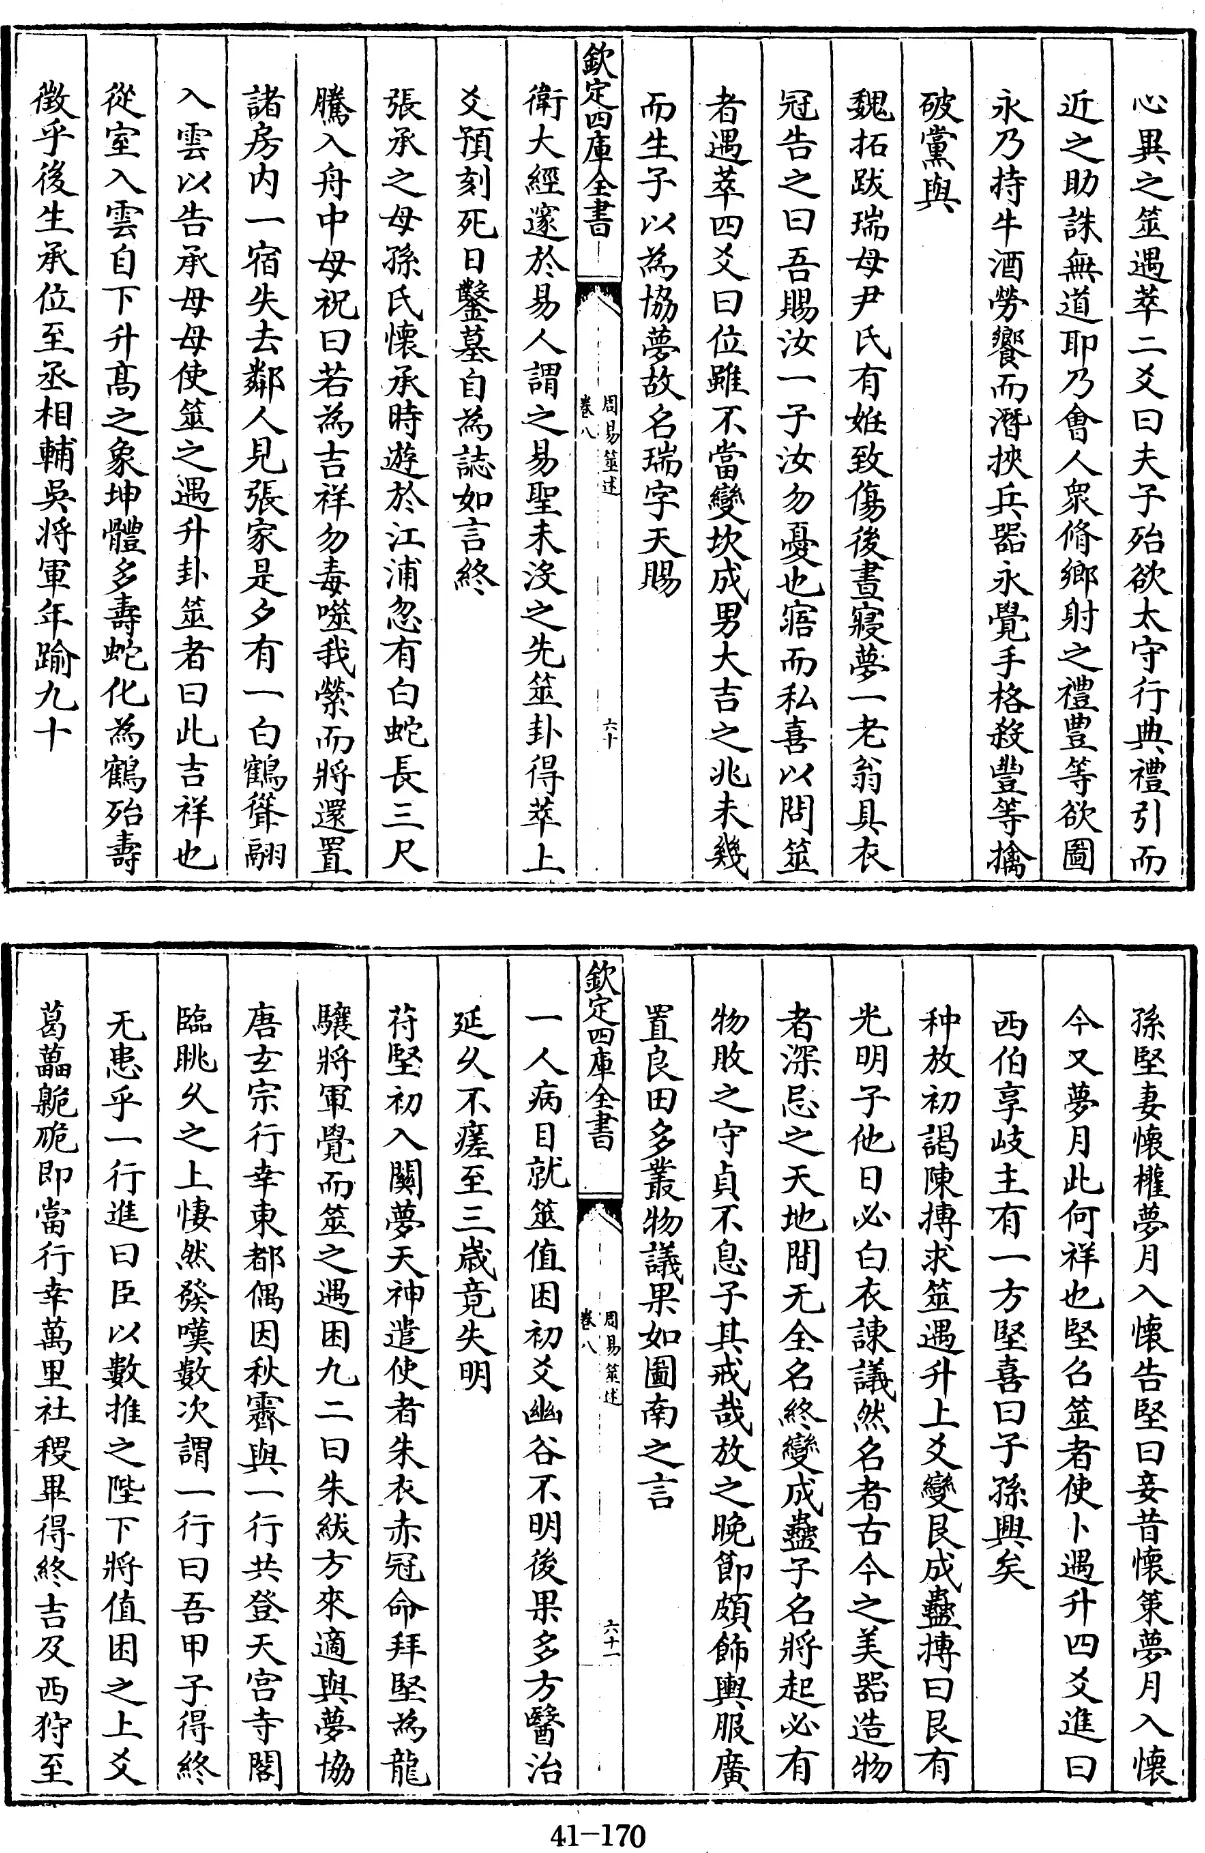 心異之筮遇萃二爻曰夫子殆欲太守行典禮引而
近之助誅無道耶乃會人衆脩鄉射之禮豐等欲圖
永乃持牛酒勞饗而潛挾兵器永覺手格殺豐等擒
破黨與
魏拓跋瑞母尹氏有姙致傷後晝寢夢一老翁具衣
冠告之曰吾賜汝一子汝勿憂也寤而私喜以問筮
者遇萃四爻曰位雖不當變坎成男大吉之兆未幾
而生子以為協夢故名瑞字天賜
欽定四庫全書
周易筮述
卷八
六十
衛大經邃於易人謂之易聖未沒之先筮卦得萃上
爻預刻死日鑿墓自為誌如言終
張承之母孫氏懷承時遊於江浦忽有白蛇長三尺
騰入舟中母祝曰若為吉祥勿毒噬我縈而將還置
諸房内一宿失去鄰人見張家是夕有一白鶴聳翮
入雲以告承母母使筮之遇升卦筮者曰此吉祥也
從室入雲自下升髙之象坤體多壽蛇化為鶴殆壽
徵乎後生承位至丞相輔吳將軍年踰九十
孫堅妻懷權夢月入懷告堅曰妾昔懷策夢月入懷
今又夢月此何祥也堅召筮者使卜遇升四爻進曰
西伯享岐主有一方堅喜曰子孫興矣
种放初謁陳摶求筮遇升上爻變艮成蠱摶曰艮有
光明子他日必白衣諫議然名者古今之美器造物
者深忌之天地間无全名終變成蠱子名將起必有
物敗之守貞不息子其戒哉放之晚節頗飾輿服廣
置良田多叢物議果如圖南之言
欽定四庫全書
周易筮述
卷八
六十一
一人病目就筮值困初爻幽谷不明後果多方醫治
延久不瘥至三歲竟失明
苻堅初入關夢天神遣使者朱衣赤冠命拜堅為龍
驤將軍覺而筮之遇困九二曰朱紱方來適與夢協
唐玄宗行幸東都偶因秋霽與一行共登天宫寺閣
臨眺久之上悽然發嘆數次謂一行曰吾甲子得終
无患乎一行進曰臣以數推之陛下將值困之上爻
葛藟臲卼即當行幸萬里社稷畢得終吉及西狩至
41-170